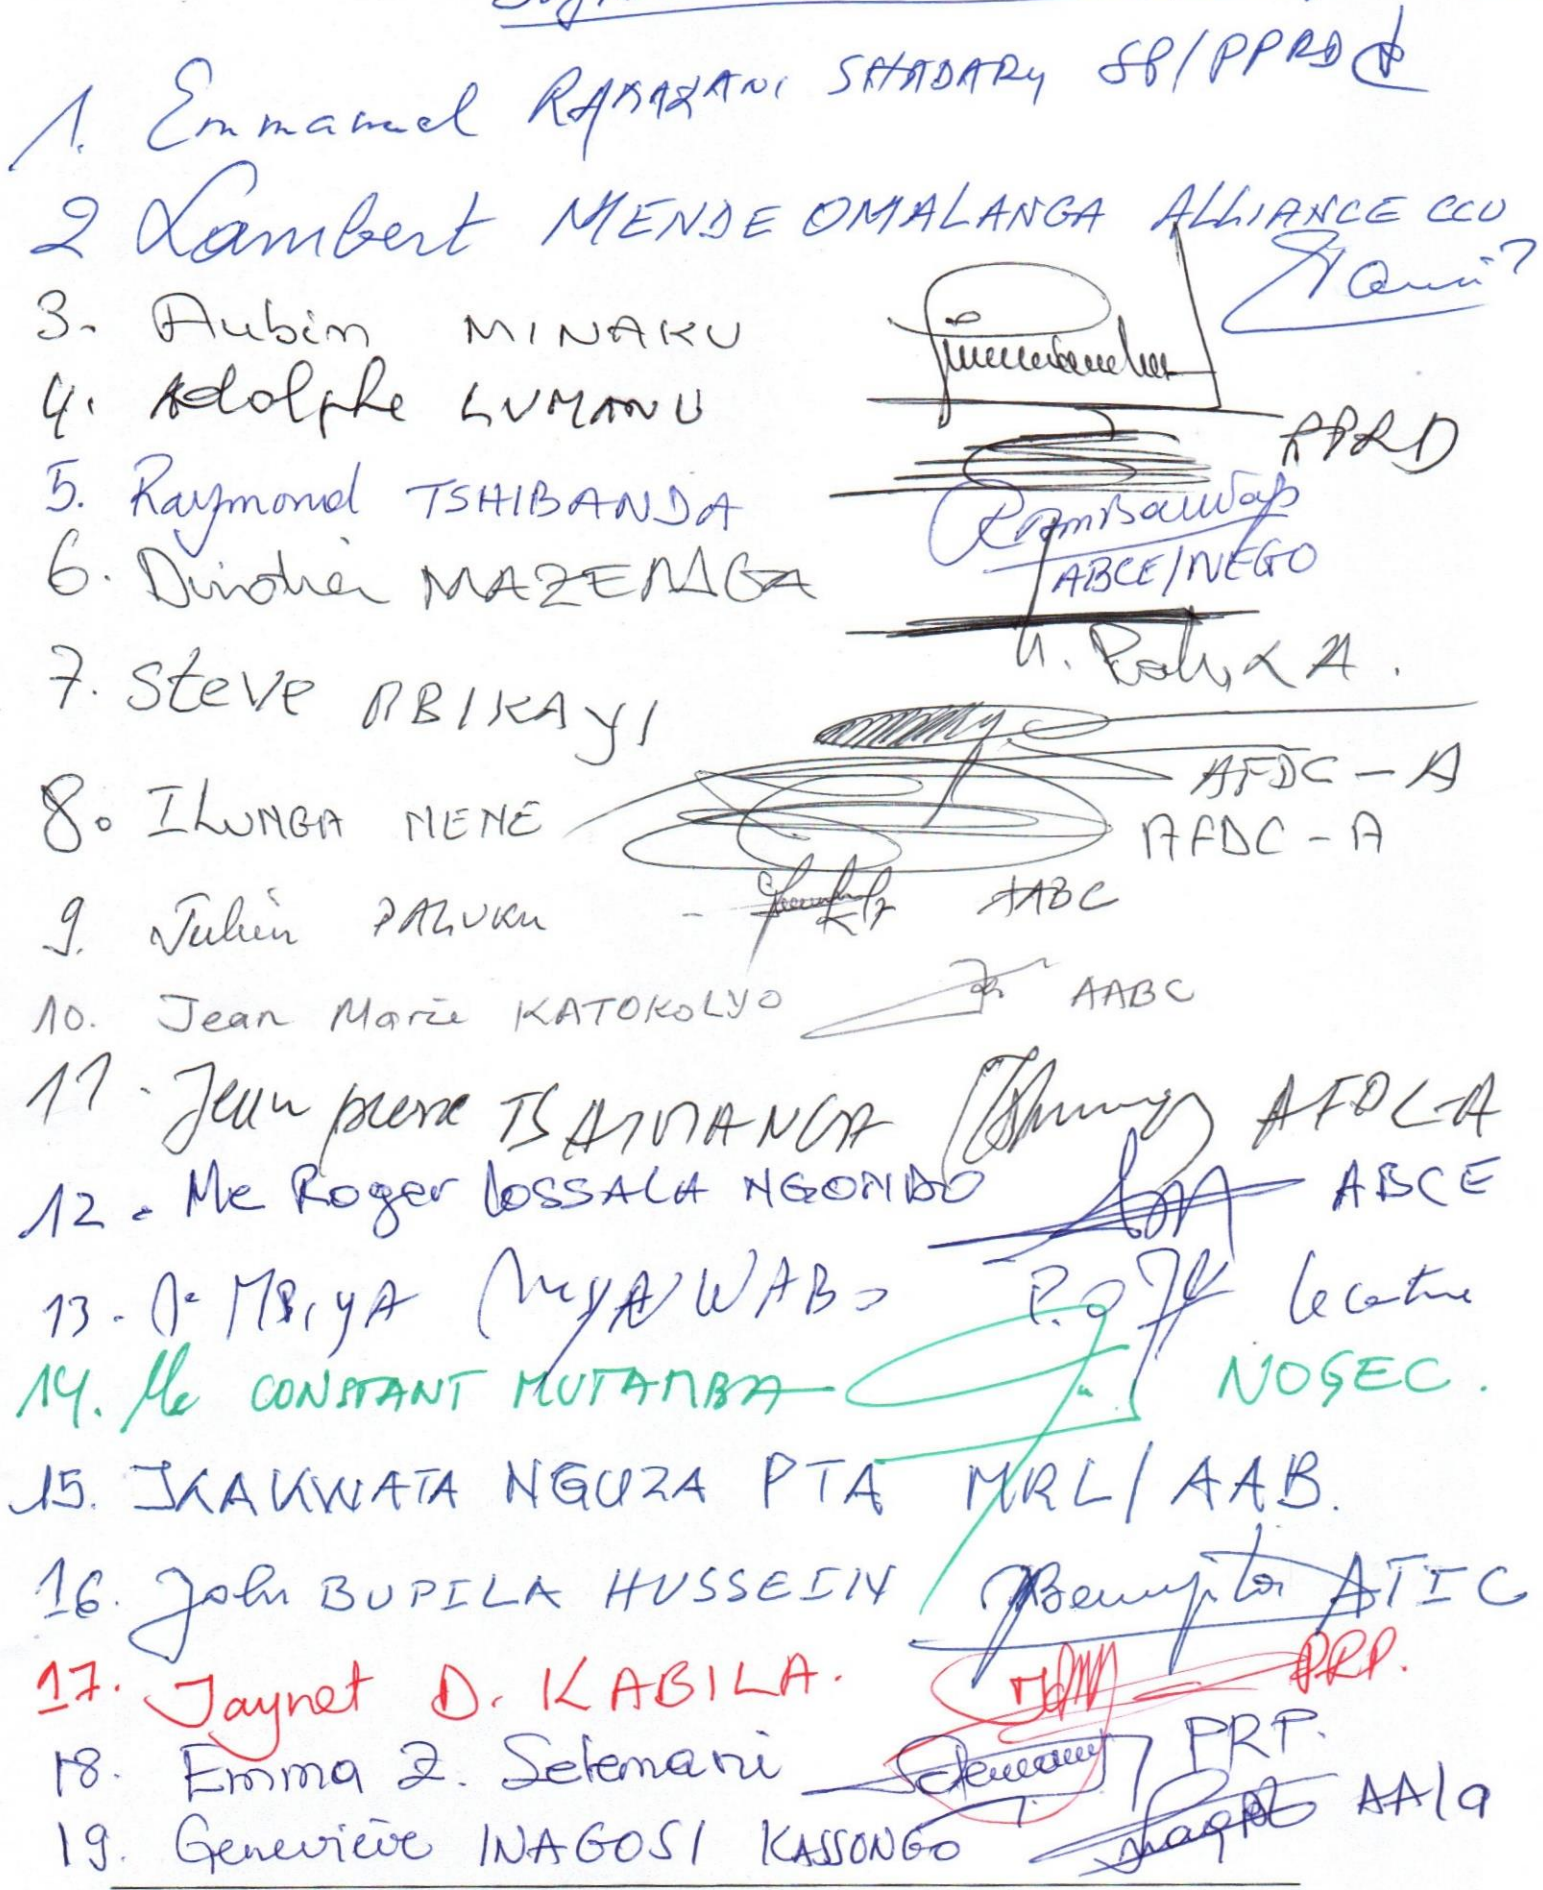 1. Emmanuel RAMAZANI SHADARY SP/PPRD
2 Lambert MENDE OMALANGA ALLIANCE CCU
3. Aubin MINAKU
4. Adolphe LUMANU
PPRD
5. Raymond TSHIBANDA
ABCE/NEGO
6. Didier MAZENGA
7. Steve MBIKAYI
AFDC-A
8. ILUNGA NENE
AFDC-A
9. Julien PALUKU - AABC
10. Jean Marie KATOKOLYO AABC
11. Jean pierre TSHIMANGA AFDC-A
12. Me Roger LOSSALA NGONDO ABCE
13. MBIYA P.O
14. Me CONSTANT MUTAMBA NOGEC.
15. IKAKWATA NGUZA PTA MRL/AAB.
16. John BUPILA HUSSEIN ATIC
17. Jaynet D. KABILA. PRP.
18. Emma Z. Selemani PRP.
19. Geneviève INAGOSI KASSONGO AA/a